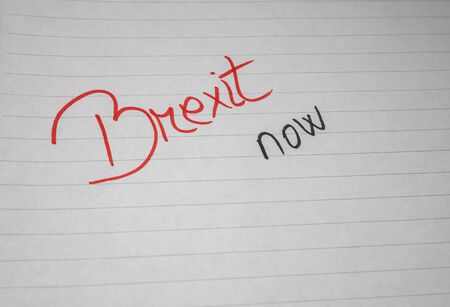 Brexit
now